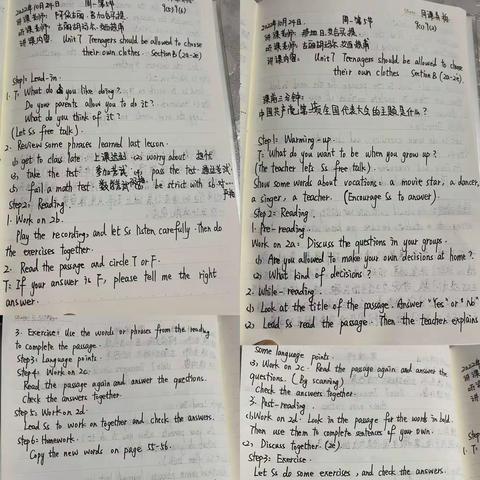 2022年10月24日. 周一第5节
9(07)(2)
讲课内容: Unit 7 Teenagers should be allowed to choose
their own clothes. Section B (2a-2e)
Step1: Lead-in.
1. T: What do you like doing?
Do your parents allow you to do it?
What do you think of it?
(Let Ss free talk).
2. Review some phrases learned last lesson.
(1) get to class late (2) worry about
(3) take the test 参加考试 (4) pass the test 通过考试
(5) fail a math test be strict with sb. 对…
Step2: Reading.
1. Work on 2b.
Play the recording, and let Ss listen carefully. Then do
the exercises together.
2. Read the passage and circle T or F.
T: If your answer is F, please tell me the right
answer.
3. Exercise: Use the words or phrases from the reading
to complete the passage.
Step3: Language points.
Step4: Work on 2c.
Read the passage again and answer the questions.
Check the answers together.
Step5: Work on 2d.
Lead Ss to work on together and check the answers.
Step6: Homework.
Copy the new words on page 55-56.
2022年10月24日. 周一第5节
9(07)(2)
讲课内容: Unit 7 Teenagers should be allowed to choose
their own clothes Section B (2a-2e).
课前三分钟:
中国共产党第 次全国代表大会的主题是什么?
Step1: Warming-up.
T: What do you want to be when you grow up?
(The teacher lets Ss free talk).
Show some words about vocations: a movie star, a dancer,
a singer, a teacher. (Encourage Ss to answer).
Step2: Reading.
1. Pre-reading.
Work on 2a: Discuss the questions in your groups.
(1) Are you allowed to make your own decisions at home?
(2) What kind of decisions?
2. While-reading.
(1) Look at the title of the passage. Answer "Yes" or "No"
(2) Lead Ss read the passage. Then the teacher explains
some language points.
(3) Work on 2c. Read the passage again and answer the
questions. (by scanning)
Check the answers together.
3. Post-reading.
(1) Work on 2d. Look in the passage for the words in bold.
Then use them to complete sentences of your own.
(2) Discuss together. (2e)
Step3: Exercise.
Let Ss do some exercises, and check the answers.